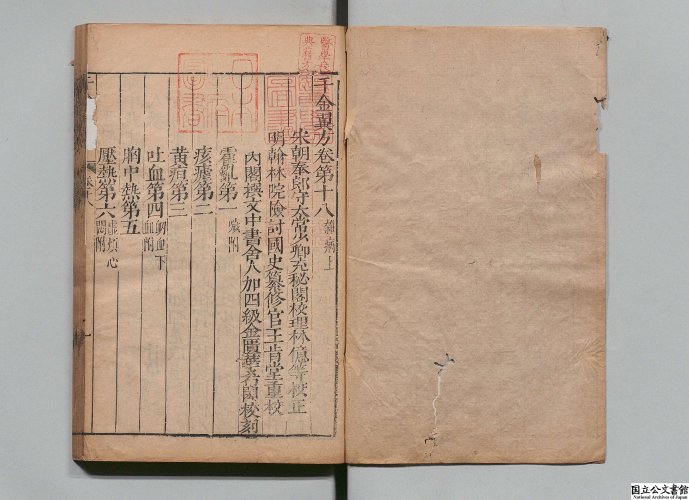 千金翼方卷第十八 雜病上
宋朝奉郎守太常少卿充秘閣校理林億等校正
明翰林院檢討國史纂修官王肯堂重校
內閣撰文中書舍人加四級金匱華希閎校刻
霍亂第一
痰瘧第二
黃疸第三
吐血第四 衂血下血附
胸中熱第五
壓熱第六 虛煩心悶附
卷十八
国立公文書館
National Archives of Japan